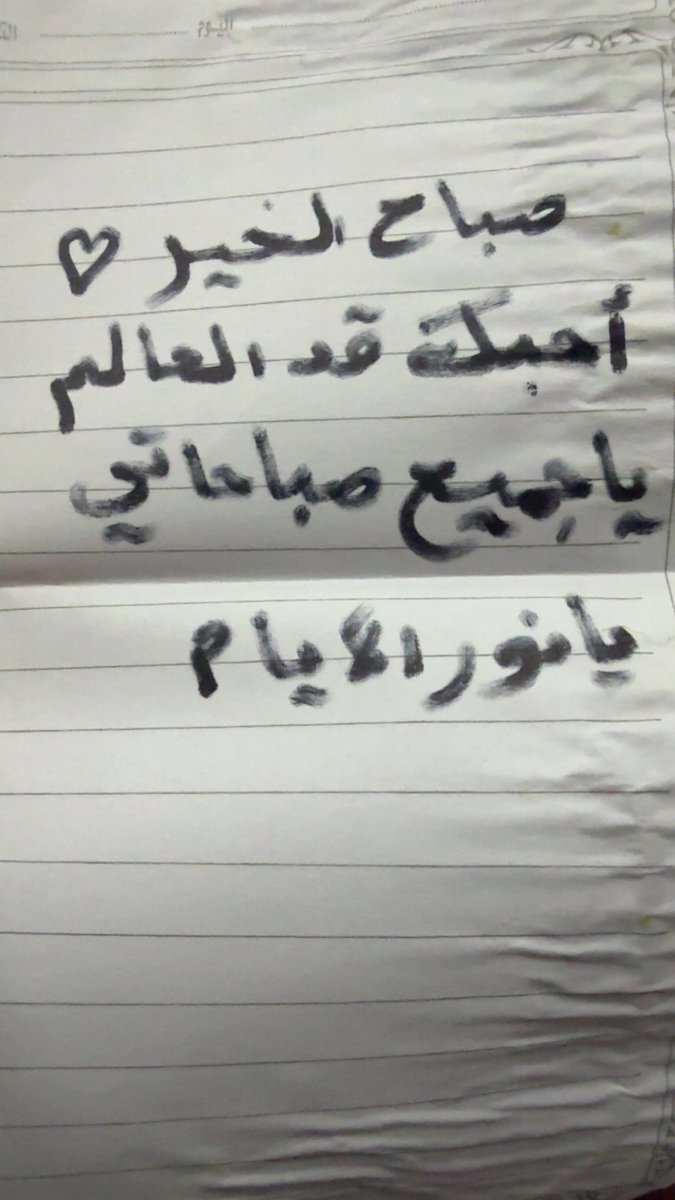 اليوم
صباح الخير ♡
أحبك قد العالم
ياجميع صباحاتي
يانور الايام